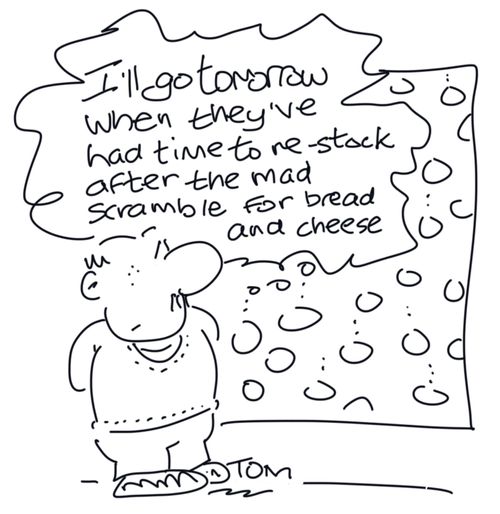 I'll go tomorrow
when they've
had time to re-stock
after the mad
scramble for bread
and cheese
TOM